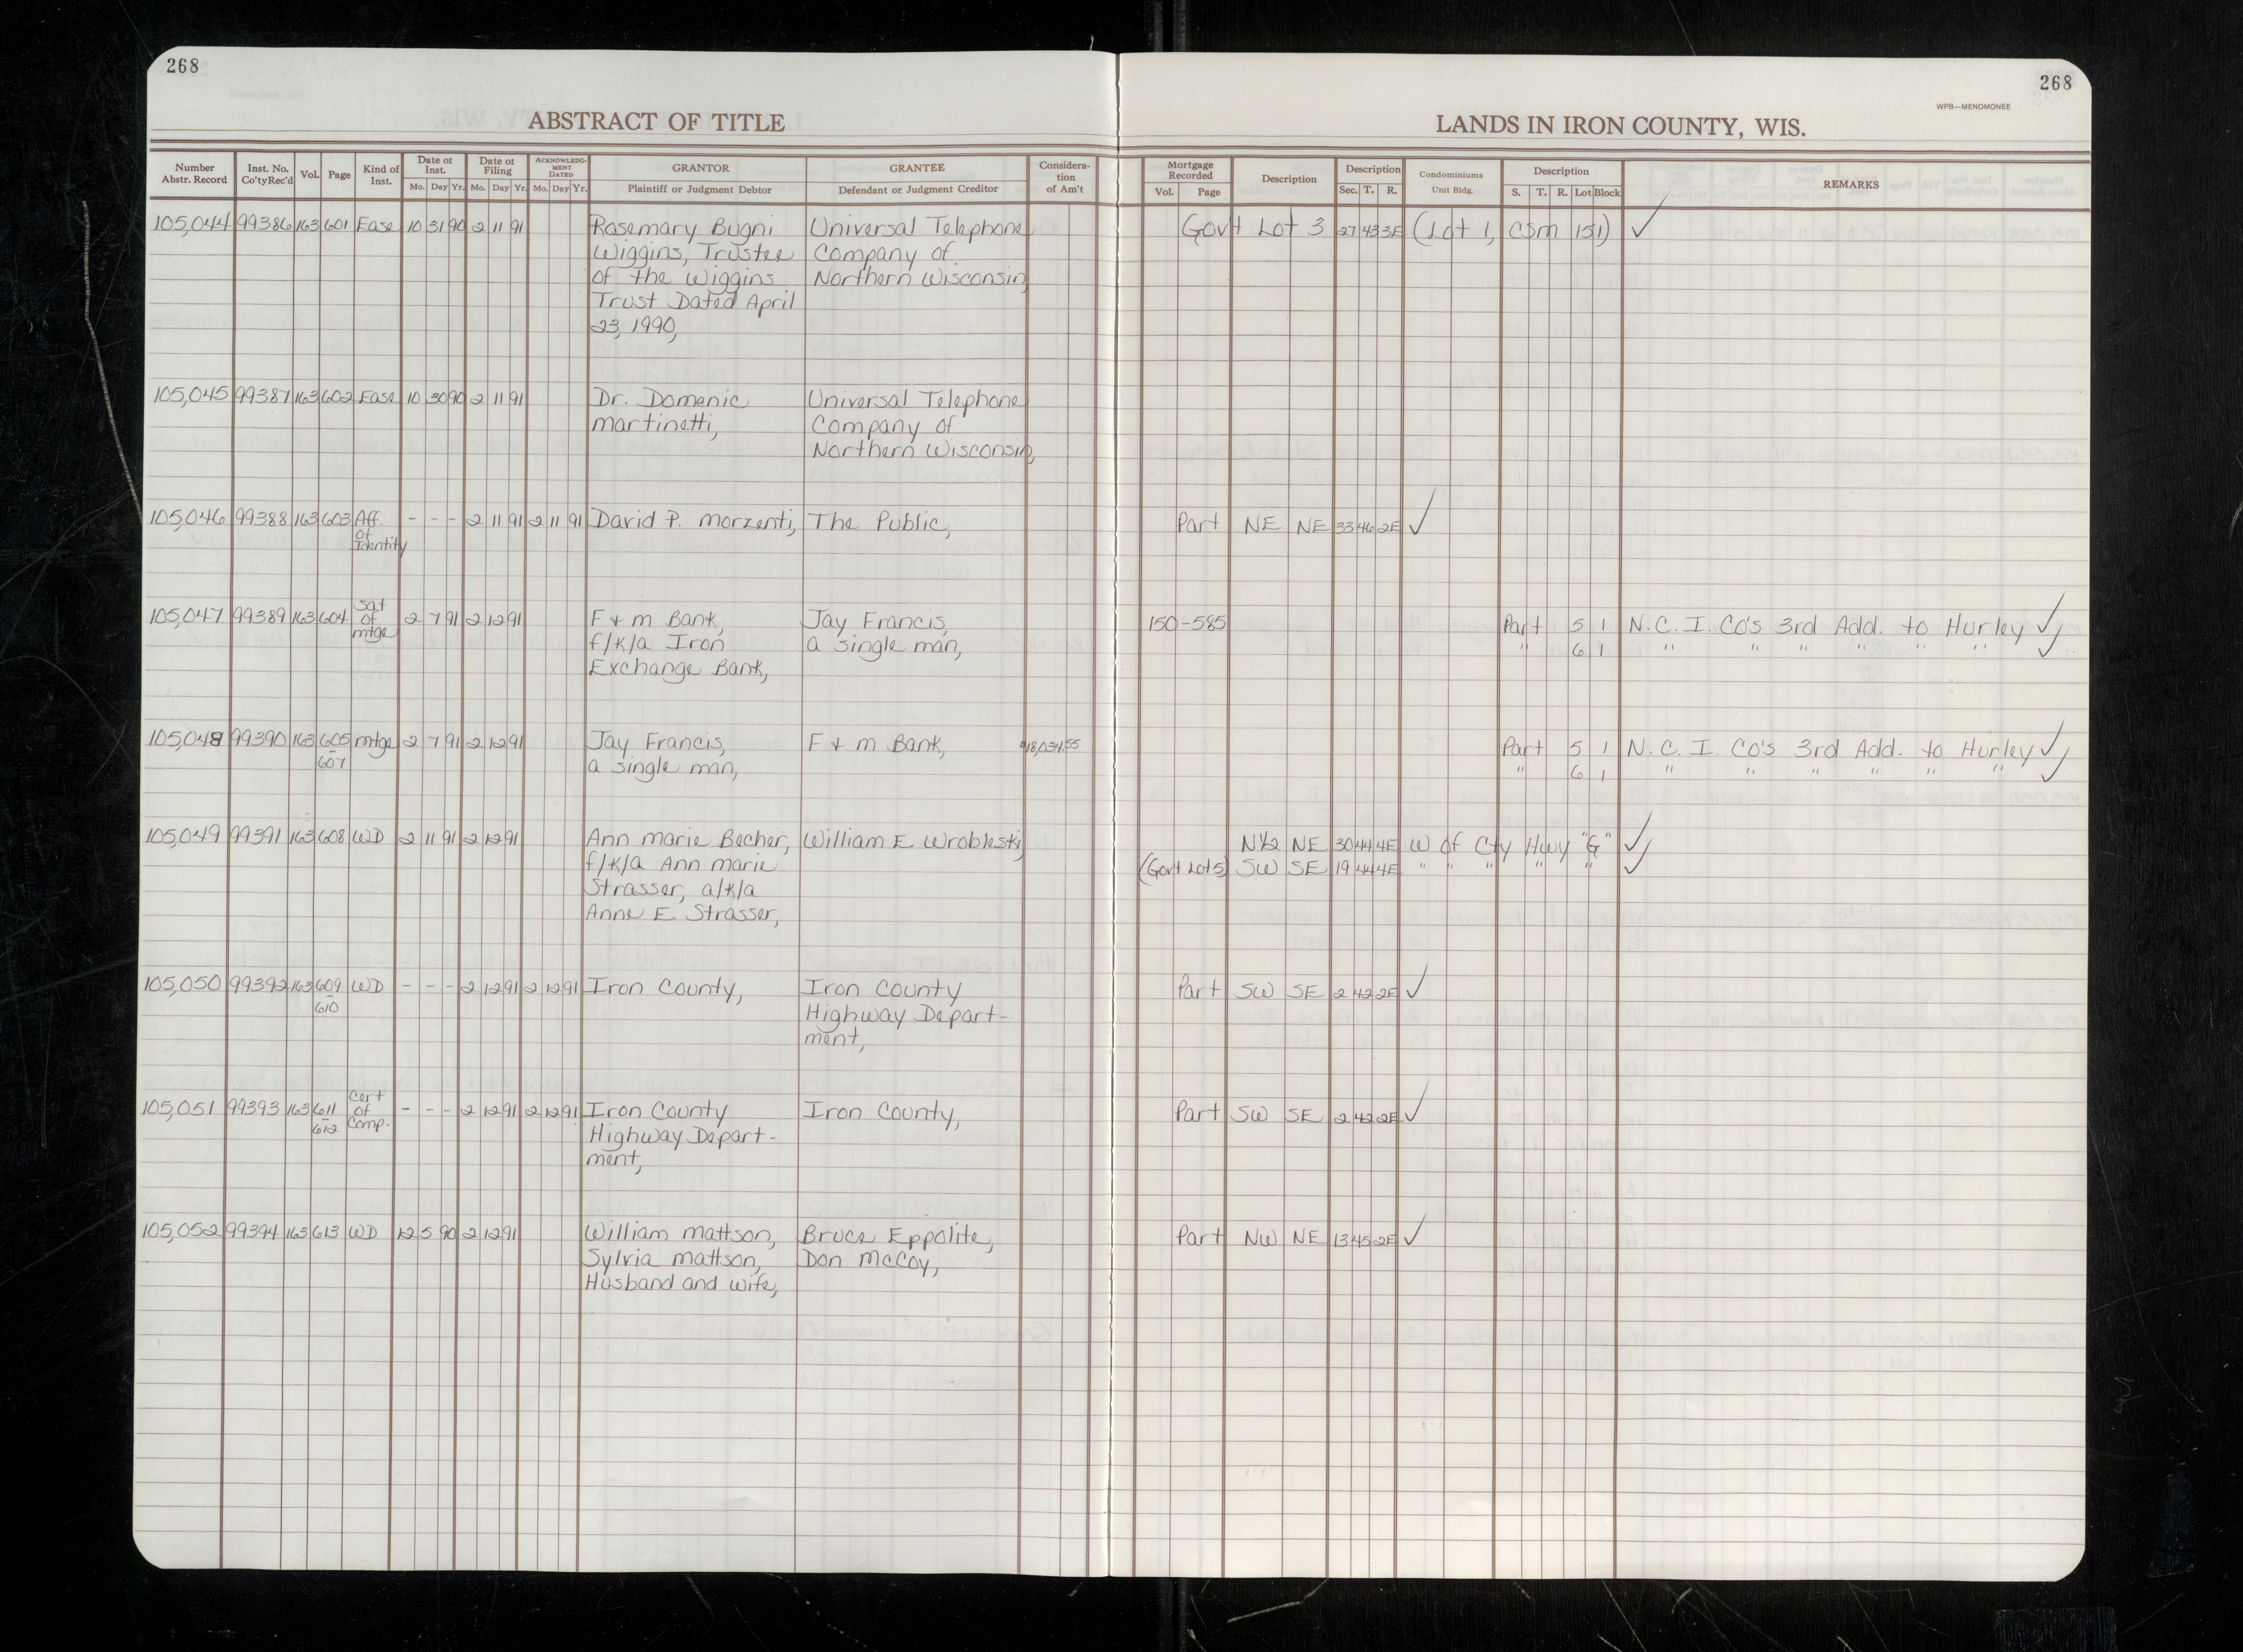 268
268
WPB—MENOMONEE
ABSTRACT OF TITLE
LANDS IN IRON COUNTY, WIS.
Number Abstr. Record | Inst. No. Co'ty Rec'd | Vol. | Page | Kind of Inst. | Date of Inst. Mo. Day Yr. | Date of Filing Mo. Day Yr. | ACKNOWLEDG-MENT DATED Mo. Day Yr. | GRANTOR Plaintiff or Judgment Debtor | GRANTEE Defendant or Judgment Creditor | Considera-tion of Am't | Mortgage Recorded Vol. Page | Description | Description Sec. T. R. | Condominiums Unit Bldg. | Description S. T. R. Lot Block | REMARKS
105,044 99386 163 601 Ease 10 31 90 2 11 91 Rosemary Bugni Universal Telephone Govt Lot 3 27 43 3E (Lot 1, CSM 151) ✓
Wiggins, Trustee Company of
of the Wiggins Northern Wisconsin,
Trust Dated April
23, 1990,
105,045 99387 163 602 Ease 10 30 90 2 11 91 Dr. Domenic Universal Telephone
Martinetti, Company of
Northern Wisconsin,
105,046 99388 163 603 Aff. - - - 2 11 91 2 11 91 David P. Morzenti, The Public, Part NE NE 33 46 2E ✓
of
Identity
105,047 99389 163 604 Sat of mtge 2 7 91 2 12 91 F & M Bank, Jay Francis, 150-585 Part 5 1 N.C.I. Co's 3rd Add. to Hurley ✓
f/k/a Iron a single man, " 6 1 " " " " " " ✓
Exchange Bank,
105,048 99390 163 605 mtge 2 7 91 2 12 91 Jay Francis, F & M Bank, $18,034.55 Part 5 1 N.C.I. Co's 3rd Add. to Hurley ✓
- 607 a single man, " 6 1 " " " " " " ✓
105,049 99391 163 608 WD 2 11 91 2 12 91 Ann Marie Becher, William E. Wrobleski, N½ NE 30 44 4E W of Cty Hwy "G" ✓
f/k/a Ann Marie (Govt Lot 5) SW SE 19 44 4E " " " " " ✓
Strasser, a/k/a
Anne E. Strasser,
105,050 99392 163 609 WD - - - 2 12 91 2 12 91 Iron County, Iron County Part SW SE 2 42 2E ✓
- 610 Highway Depart-
ment,
105,051 99393 163 611 Cert of Comp. - - - 2 12 91 2 12 91 Iron County Iron County, Part SW SE 2 42 2E ✓
- 612 Highway Depart-
ment,
105,052 99394 163 613 WD 12 5 90 2 12 91 William Mattson, Bruce Eppolite, Part NW NE 13 45 2E ✓
Sylvia Mattson, Don McCoy,
Husband and wife,